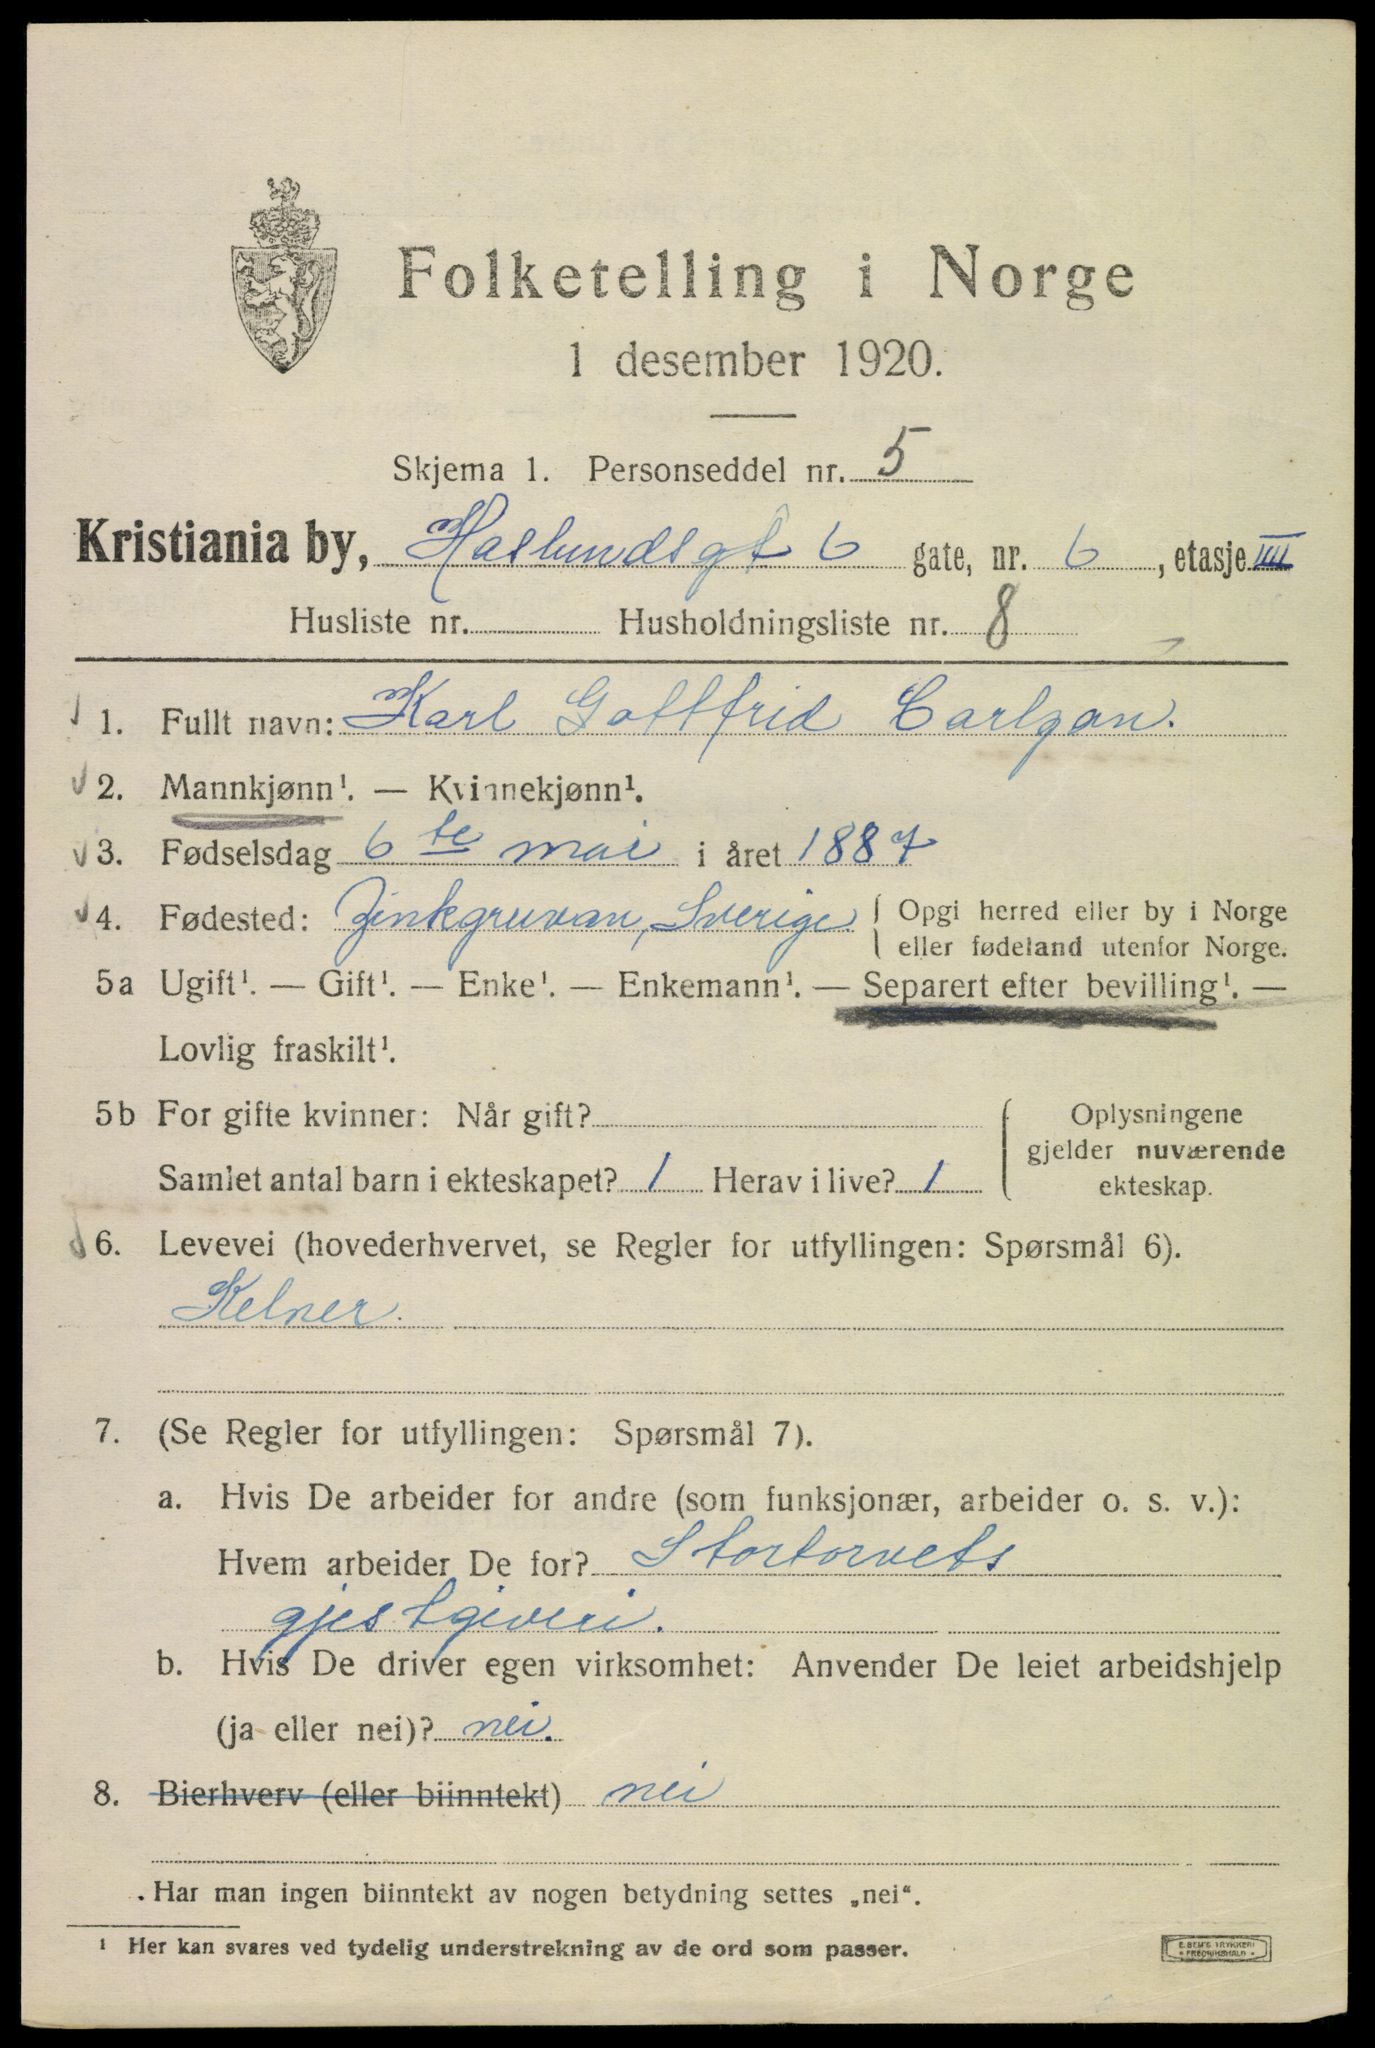 Folketelling i Norge
1 desember 1920.
Skjema 1. Personseddel nr. 5
Kristiania by, Haslundsgt 6 gate, nr. 6, etasje IIII
Husliste nr. Husholdningsliste nr. 8
1. Fullt navn: Karl Gottfrid Carlzon.
2. Mannkjønn¹. — Kvinnekjønn¹.
3. Fødselsdag 6te mai i året 1887
4. Fødested: Zinkgruvan, Sverige. Opgi herred eller by i Norge
eller fødeland utenfor Norge.
5a Ugift¹. — Gift¹. — Enke¹. — Enkemann¹. — Separert efter bevilling¹. —
Lovlig fraskilt¹.
5b For gifte kvinner: Når gift?
Samlet antal barn i ekteskapet? 1 Herav i live? 1
Oplysningene
gjelder nuværende
ekteskap.
6. Levevei (hovederhvervet, se Regler for utfyllingen: Spørsmål 6).
Kelner.
7. (Se Regler for utfyllingen: Spørsmål 7).
a. Hvis De arbeider for andre (som funksjonær, arbeider o. s. v.):
Hvem arbeider De for? Stortorvets
gjestgiveri.
b. Hvis De driver egen virksomhet: Anvender De leiet arbeidshjelp
(ja eller nei)? nei.
8. Bierhverv (eller biinntekt) nei
Har man ingen biinntekt av nogen betydning settes „nei“.
¹ Her kan svares ved tydelig understrekning av de ord som passer.
E. SEM'S TRYKKERI
FREDRIKSHALD